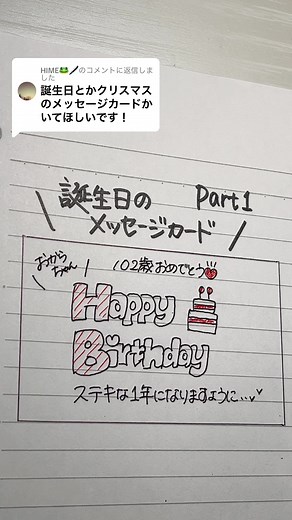 HIME🐸🖊のコメントに返信しま
した
誕生日とかクリスマス
のメッセージカードか
いてほしいです！
誕生日の Part1
メッセージカード
おからちゃん
102歳おめでとう
Happy
Birthday
ステキな1年になりますように...